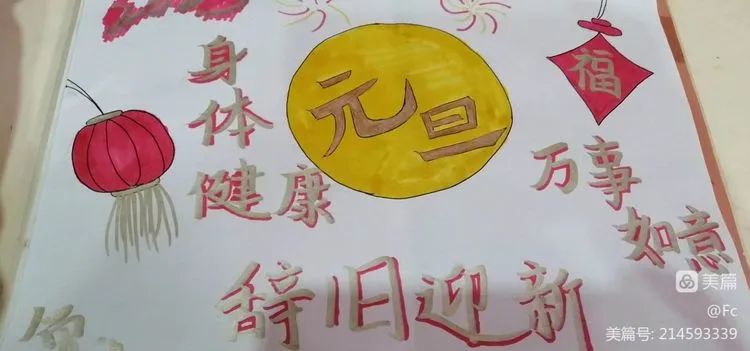 元旦
福
身体健康
万事如意
辞旧迎新
美篇
@Fc
美篇号: 214593339